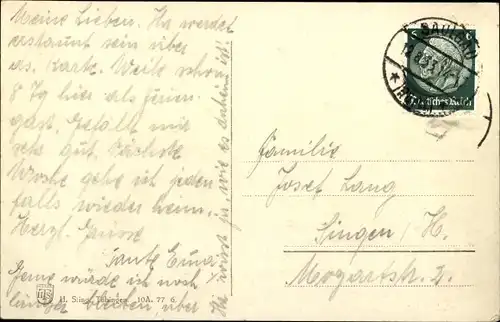 Meine Lieben. Ihr werdet
erstaunt sein über
ds. Karte. Weile schon
8 Tg hier als
gast. Gefällt mir
sehr gut. Nächste
Woche gehe ich jeden
falls wieder heim.
Herzl. Grüsse
Tante Emma
Gerne würde ich noch
länger bleiben aber
Ihr wisst ja, wie es daheim ist.
SAULGAU
Deutsches Reich
Familie
Josef Lang
Singen / H.
Mozartstr. 2.
H. Sting, Tübingen 10A. 77 6.